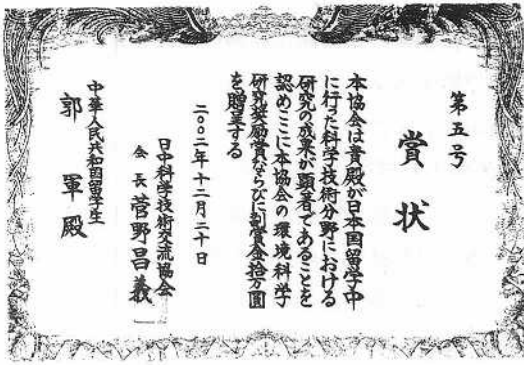 第五号
賞状
本協会は貴殿が日本国留学中
に行った科学技術分野における
研究の成果が顕著であることを
認めここに本協会の環境科学
研究奨励賞ならびに副賞金拾万圓
を贈呈する
二〇〇二年十二月二十日
日中科学技術交流協会
会長 菅野昌義
中華人民共和国留学生
郭軍殿